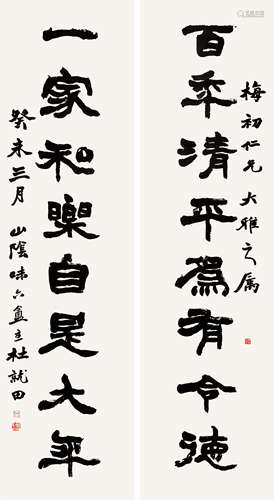 梅初仁兄 大雅之属
百秊清平爲有令德
一家和樂自是大年
癸未三月 山陰味六盦主杜就田